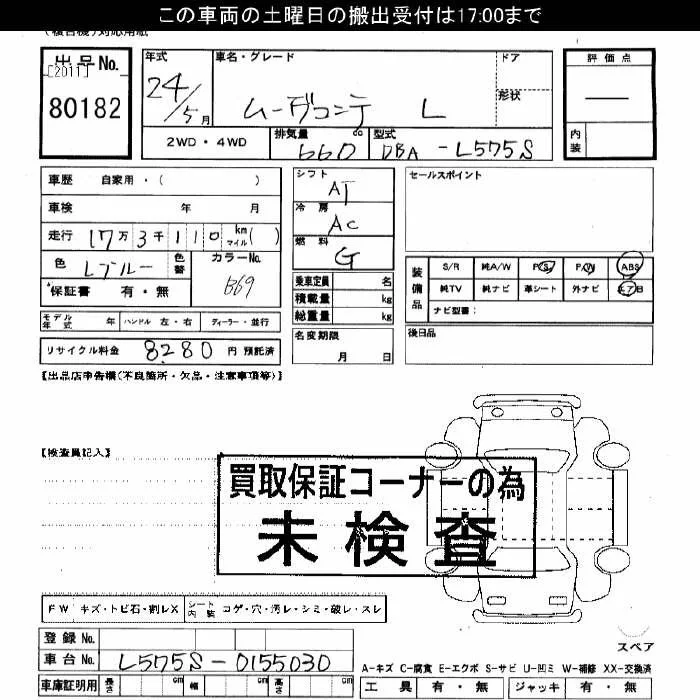 この車両の土曜日の搬出受付は17:00まで
(複合機)対応用紙
出品No. [2011] 80182
年式 24/5月
車名・グレード ムーヴコンテ L
ドア
形状
評価点 —
内装
2WD・4WD
排気量 660 cc
型式 DBA-L575S
車歴 自家用・( )
車検 年 月
走行 17万3千110 km マイル( )
色 Lブルー 色替 カラーNo. B69
保証書 有・無
モデル年式 年 ハンドル 左・右 ディーラー・並行
リサイクル料金 8280 円 預託済
シフト AT
冷房 AC
燃料 G
乗車定員 名
積載量 kg
総重量 kg
名変期限
月 日
セールスポイント
装備品 S/R 純A/W P/S P/W ABS
純TV 純ナビ 革シート 外ナビ エアB
ナビ型番:
後日品
【出品店申告欄(不良箇所・欠品・注意事項等)】
【検査員記入】
買取保証コーナーの為
未検査
FW キズ・トビ石・割レX シート内装 コゲ・穴・汚レ・シミ・破レ・スレ
スペア
登録No.
車台No. L575S-0155030
車庫証明用 長さ cm 幅 cm 高さ cm
A-キズ C-腐食 E-エクボ S-サビ U-凹ミ W-補修 XX-交換済
工具 有・無 ジャッキ 有・無